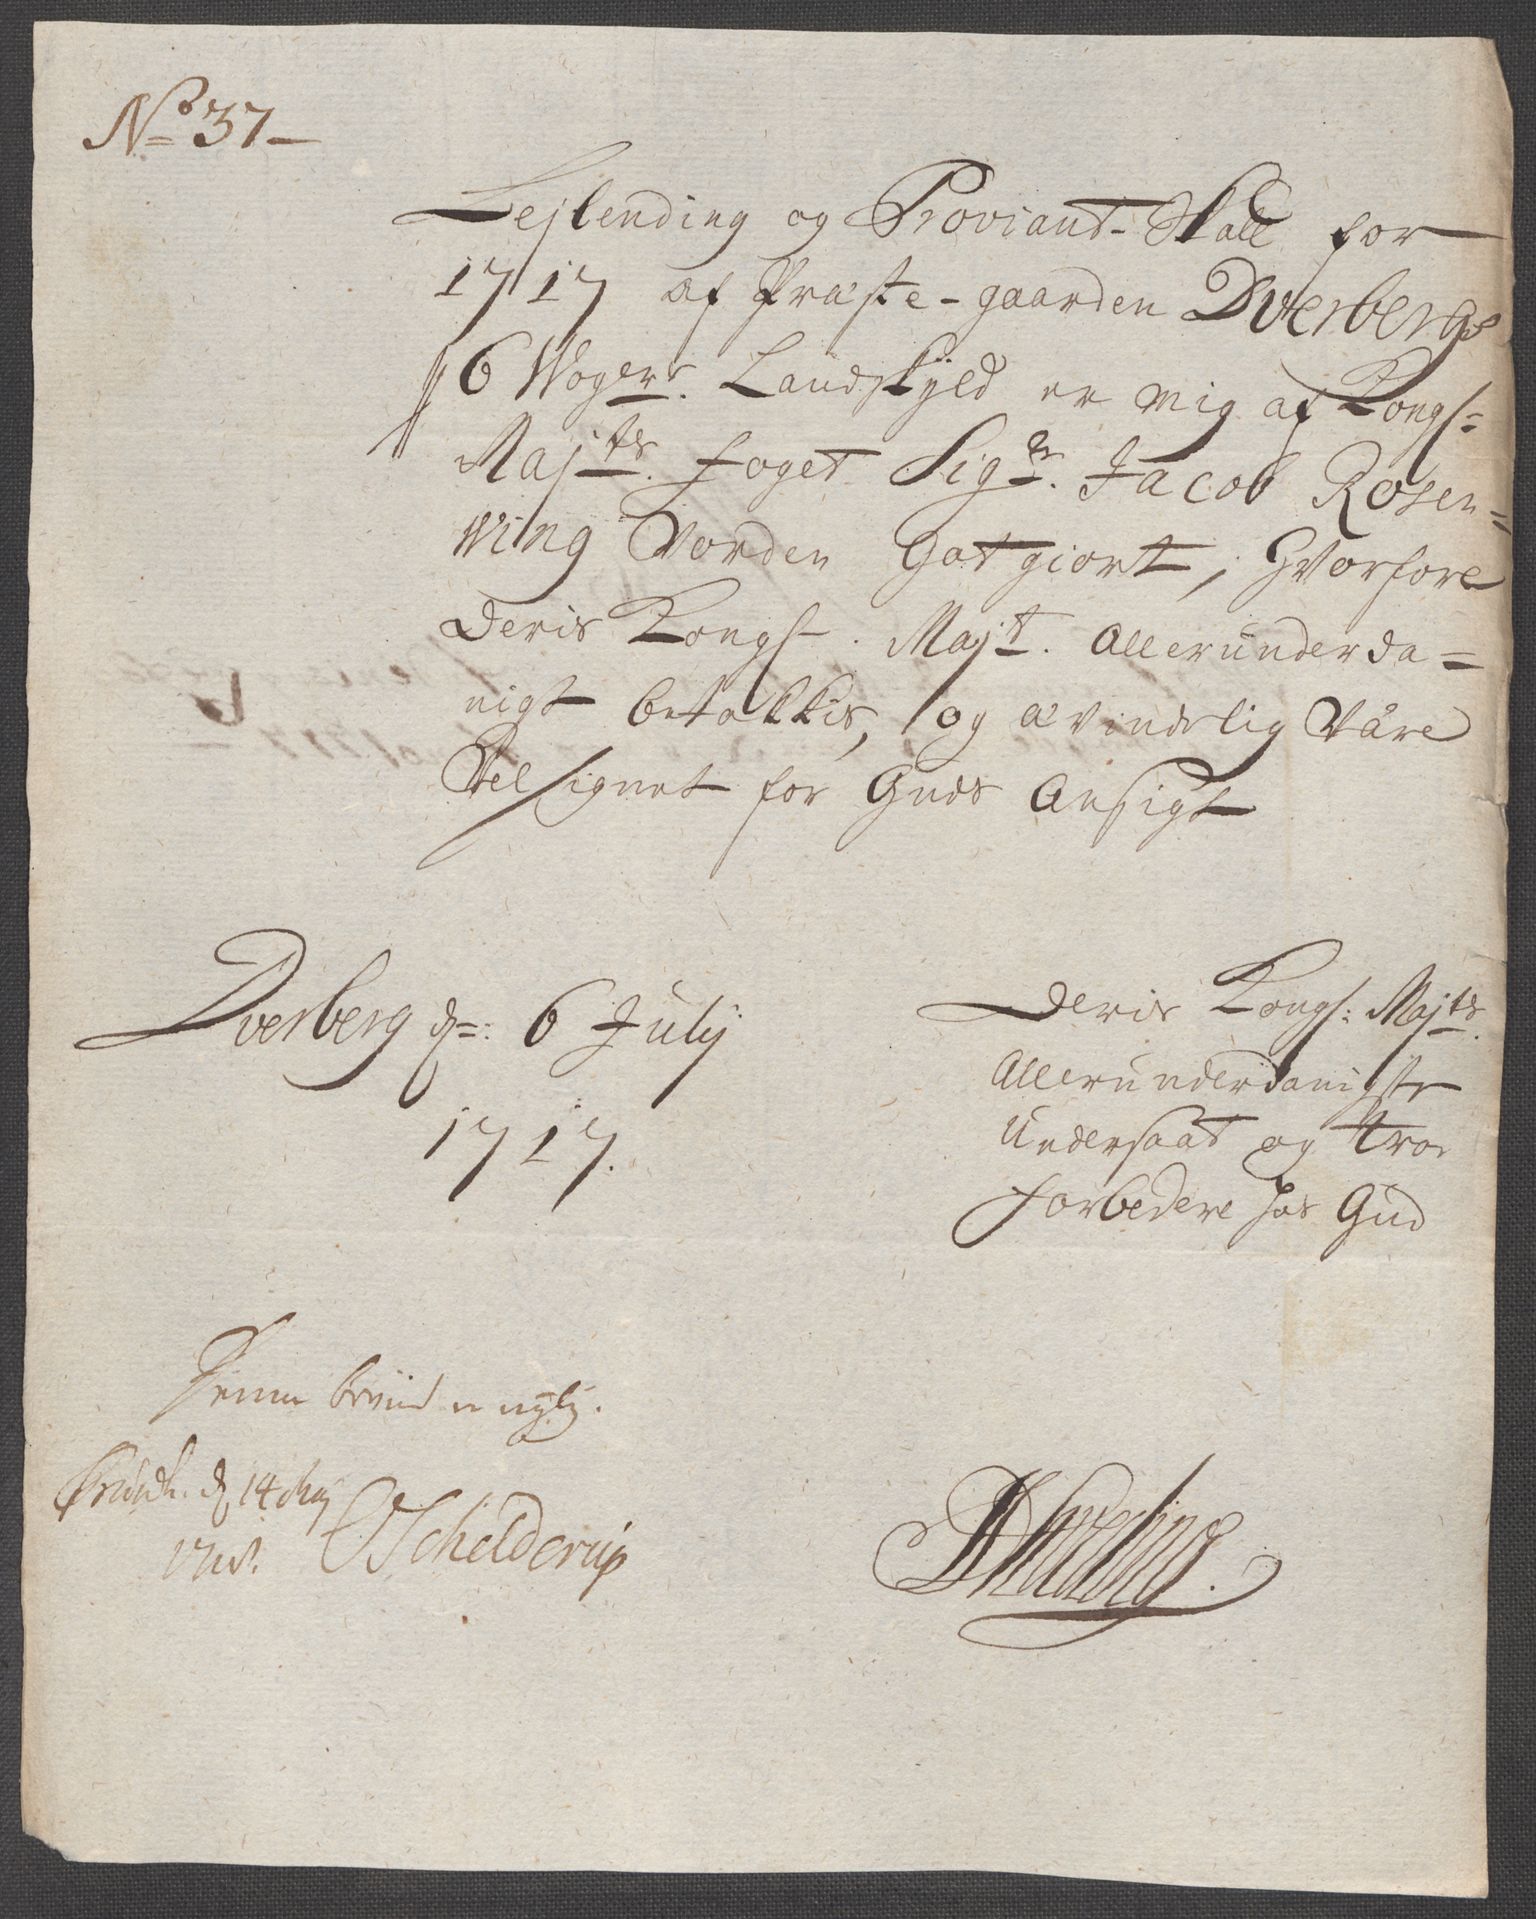 No 37
Lejlending og Proviant-Skatt for
1717 af Præste-gaarden Dverbergs
6 Woger Landskyld er mig af Kongs=
Majts. foget Sigr. Jacob Rosen=
wing Vorden Gotgiort, Hvorfore
Deris Kongs. Majt. Allerunderda=
nigt betakkis, og ævindelig være
Velsignet for Guds Ansigt
Dverberg d: 6 Julij
1717.
Deris Kongs: Majts.
Allerunderdanigste
Undersaat og troe
forbedere hos Gud
Denne
d 14 Maij
OSchelderup